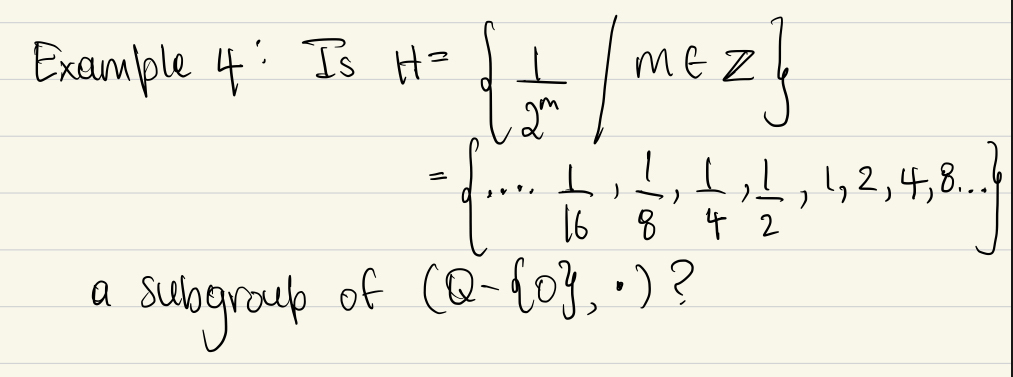 Example 4: Is H = { 1/2^m / m ∈ Z }
= { .... 1/16, 1/8, 1/4, 1/2, 1, 2, 4, 8... }
a subgroup of (Q-{0}, •) ?